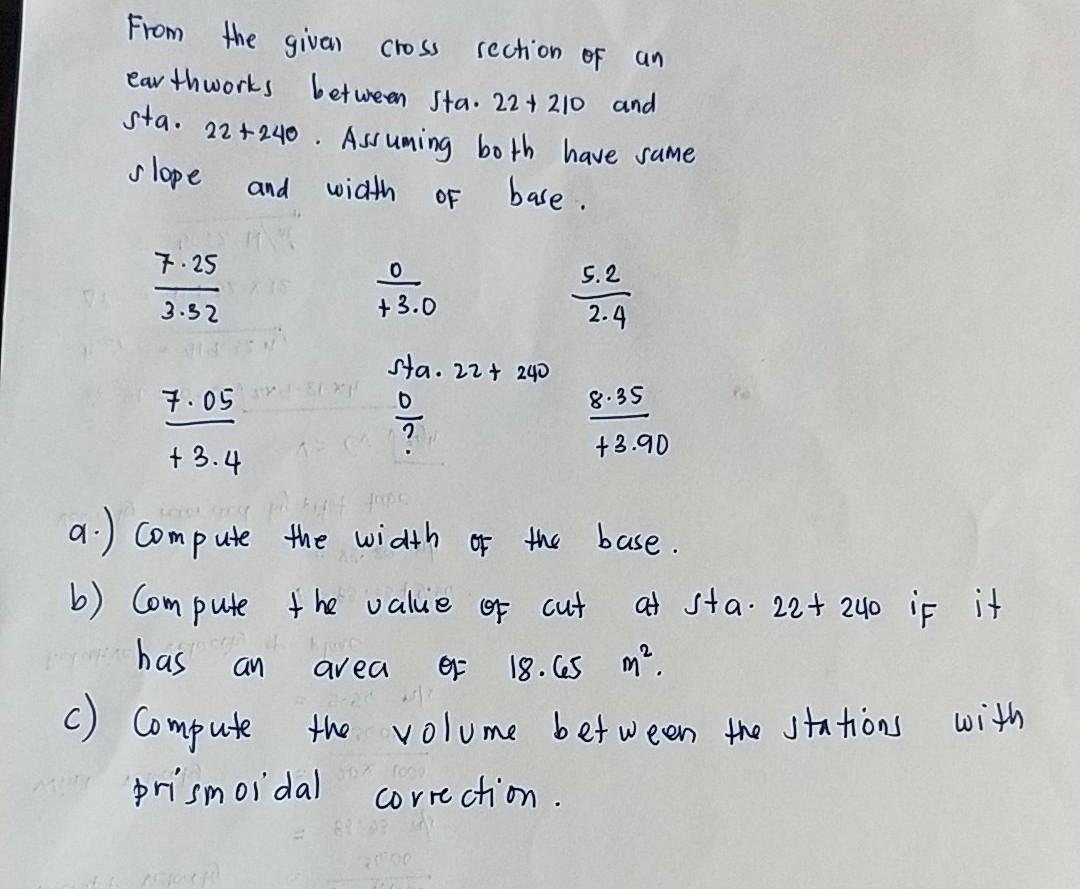 From the given cross section of an
earthworks between sta. 22+210 and
sta. 22+240. Assuming both have same
slope and width of base.
7.25 0 5.2
3.52 +3.0 2.4
sta. 22+240
7.05 0 8.35
+3.4 ? +3.90
a.) Compute the width of the base.
b) Compute the value of cut at sta. 22+240 if it
has an area of 18.65 m².
c) Compute the volume between the stations with
prismoidal correction.